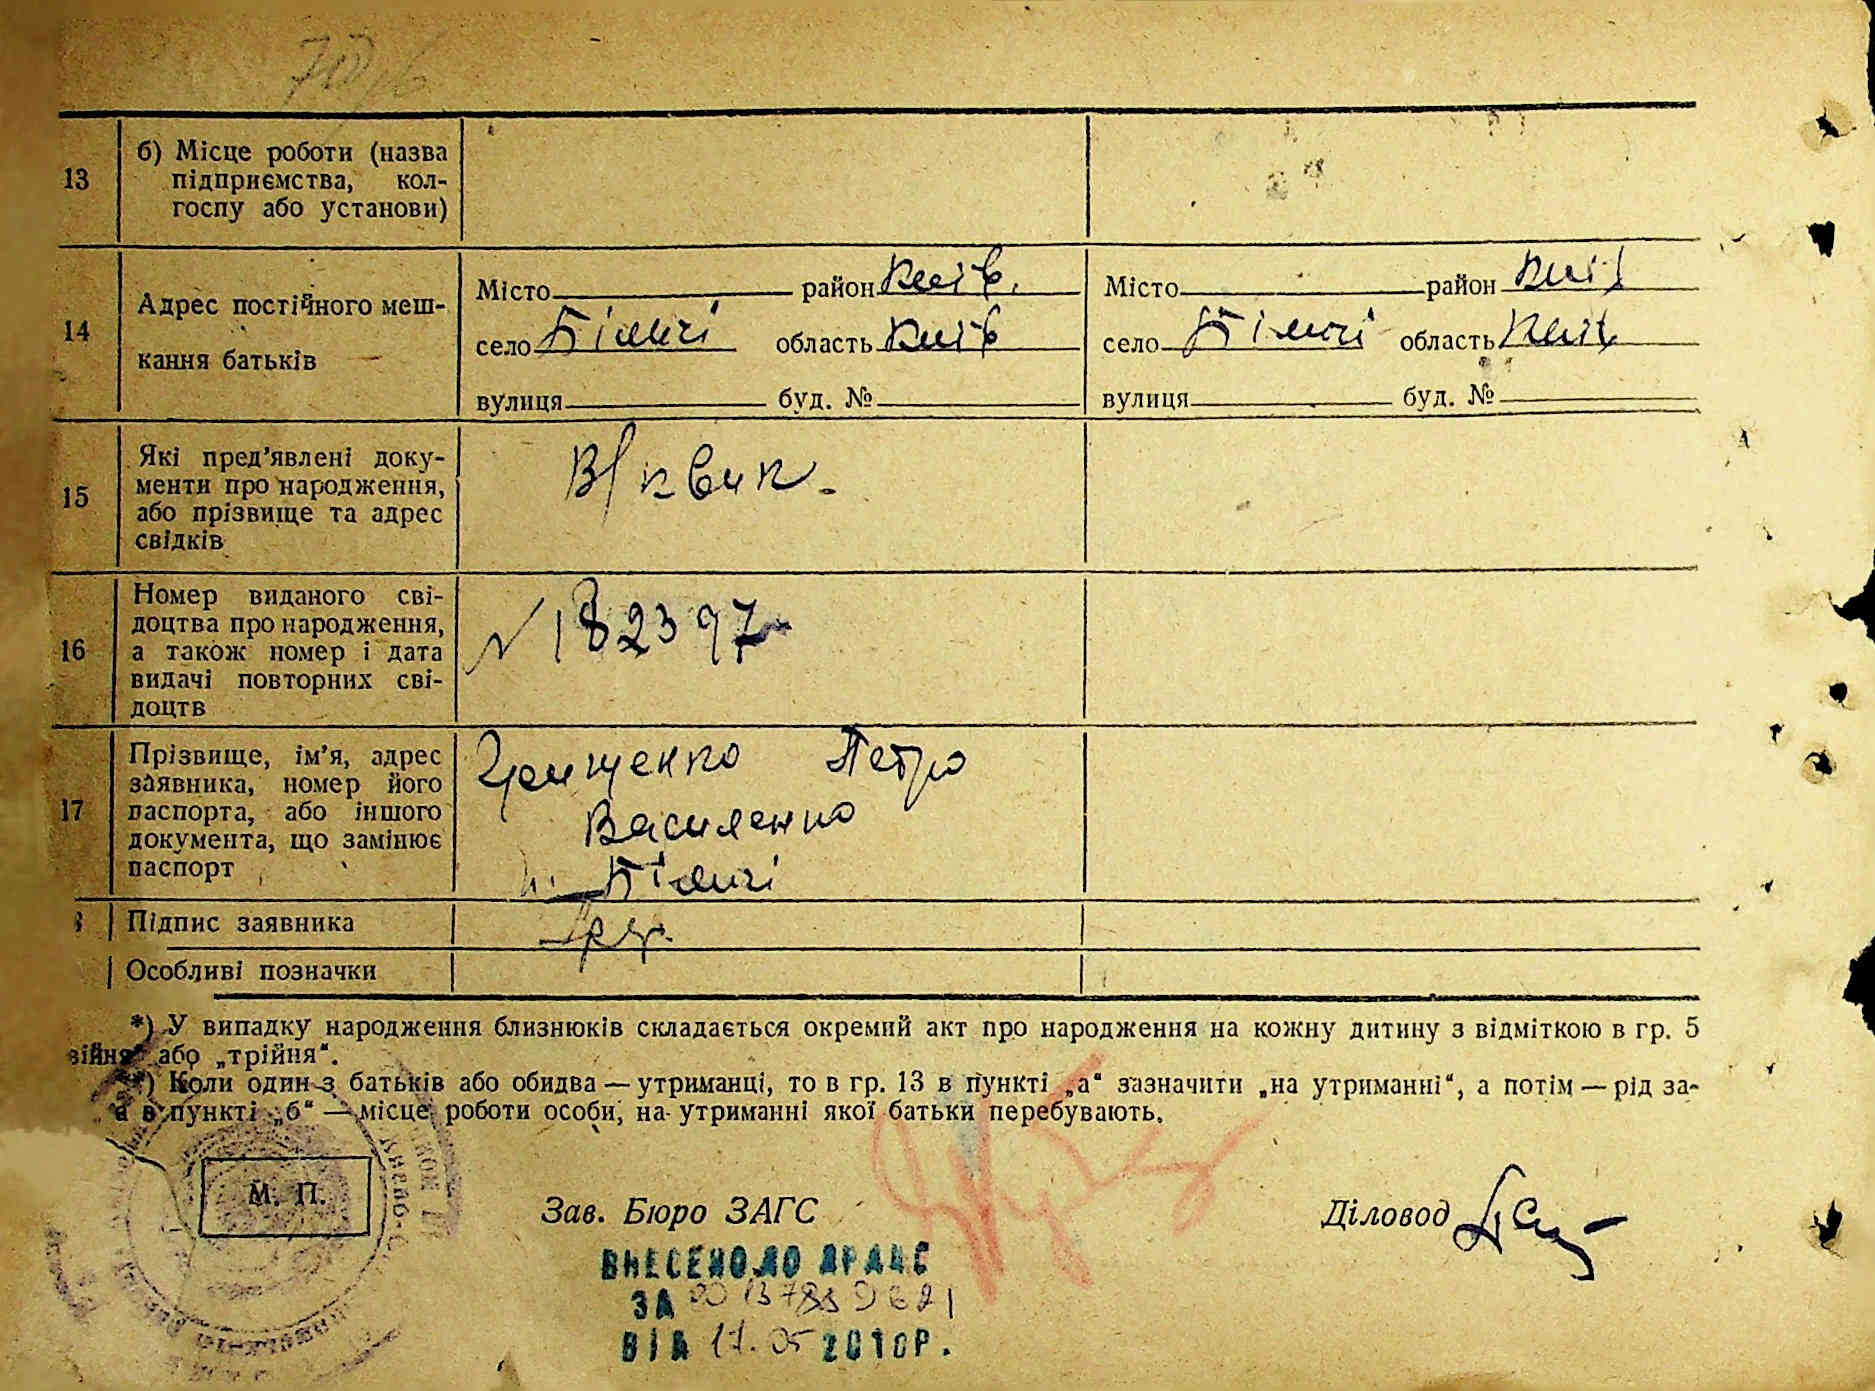 13
б) Місце роботи (назва
підприємства, кол-
госпу або установи)
14
Адрес постійного меш-
кання батьків
Місто район Київ.
село Біличі область Київ
вулиця буд. №
Місто район Київ
село Біличі область Київ
вулиця буд. №
15
Які пред'явлені доку-
менти про народження,
або прізвище та адрес
свідків
16
Номер виданого сві-
доцтва про народження,
а також номер і дата
видачі повторних сві-
доцтв
N 182397
17
Прізвище, ім'я, адрес
заявника, номер його
паспорта, або іншого
документа, що замінює
паспорт
Петро
Василенко
Біличі
Підпис заявника
Особливі позначки
*) У випадку народження близнюків складається окремий акт про народження на кожну дитину з відміткою в гр. 5
війня“ або „трійня“.
**) Коли один з батьків або обидва — утриманці, то в гр. 13 в пункті „а“ зазначити „на утриманні“, а потім — рід за-
а в пункті „б“ — місце роботи особи, на утриманні якої батьки перебувають.
М. П.
Зав. Бюро ЗАГС
Діловод
ВНЕСЕНО ДО ДРАЦС
ЗА
ВІД 17.05 2010Р.